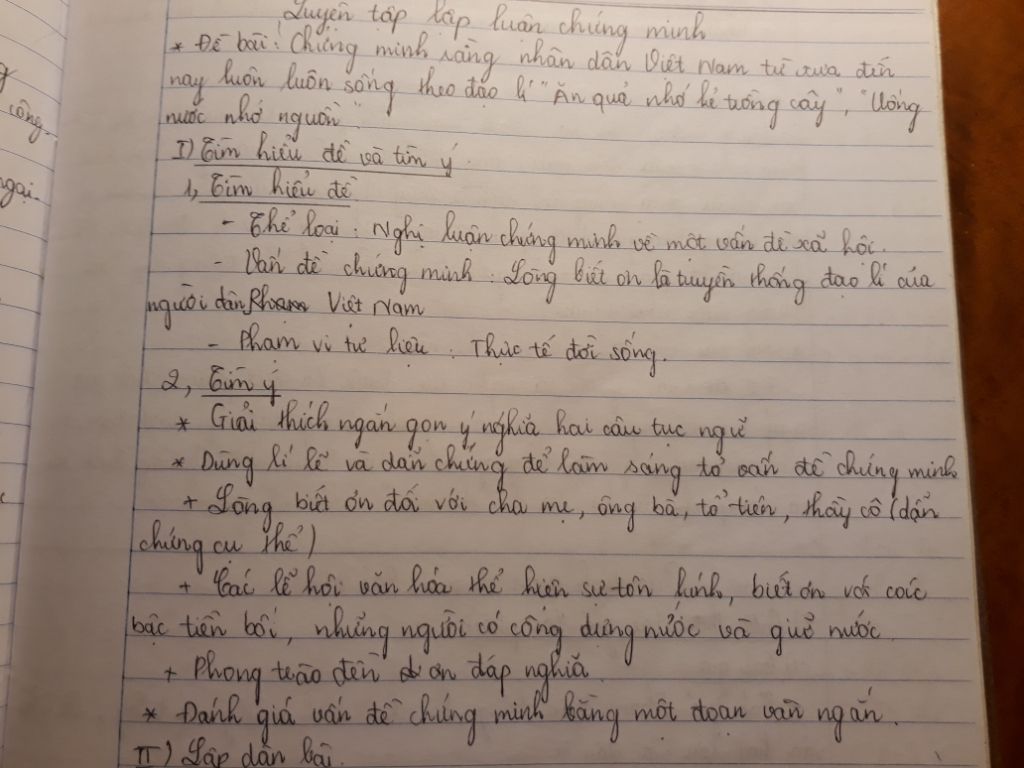 Luyện tập lập luận chứng minh
* Đề bài: Chứng minh rằng nhân dân Việt Nam từ xưa đến
nay luôn luôn sống theo đạo lí "Ăn quả nhớ kẻ trồng cây", "Uống
nước nhớ nguồn"
I) Tìm hiểu đề và tìm ý
1, Tìm hiểu đề
- Thể loại: Nghị luận chứng minh về một vấn đề xã hội.
- Vấn đề chứng minh: Lòng biết ơn là truyền thống đạo lí của
người dân Việt Nam
- Phạm vi tư liệu: Thực tế đời sống.
2, Tìm ý
* Giải thích ngắn gọn ý nghĩa hai câu tục ngữ
* Dùng lí lẽ và dẫn chứng để làm sáng tỏ vấn đề chứng minh
+ Lòng biết ơn đối với cha mẹ, ông bà, tổ tiên, thầy cô (dẫn
chứng cụ thể)
+ Các lễ hội văn hóa thể hiện sự tôn kính, biết ơn với các
bậc tiền bối, những người có công dựng nước và giữ nước.
+ Phong trào đền ơn đáp nghĩa.
* Đánh giá vấn đề chứng minh bằng một đoạn văn ngắn.
II) Lập dàn bài.
công.
ngại.